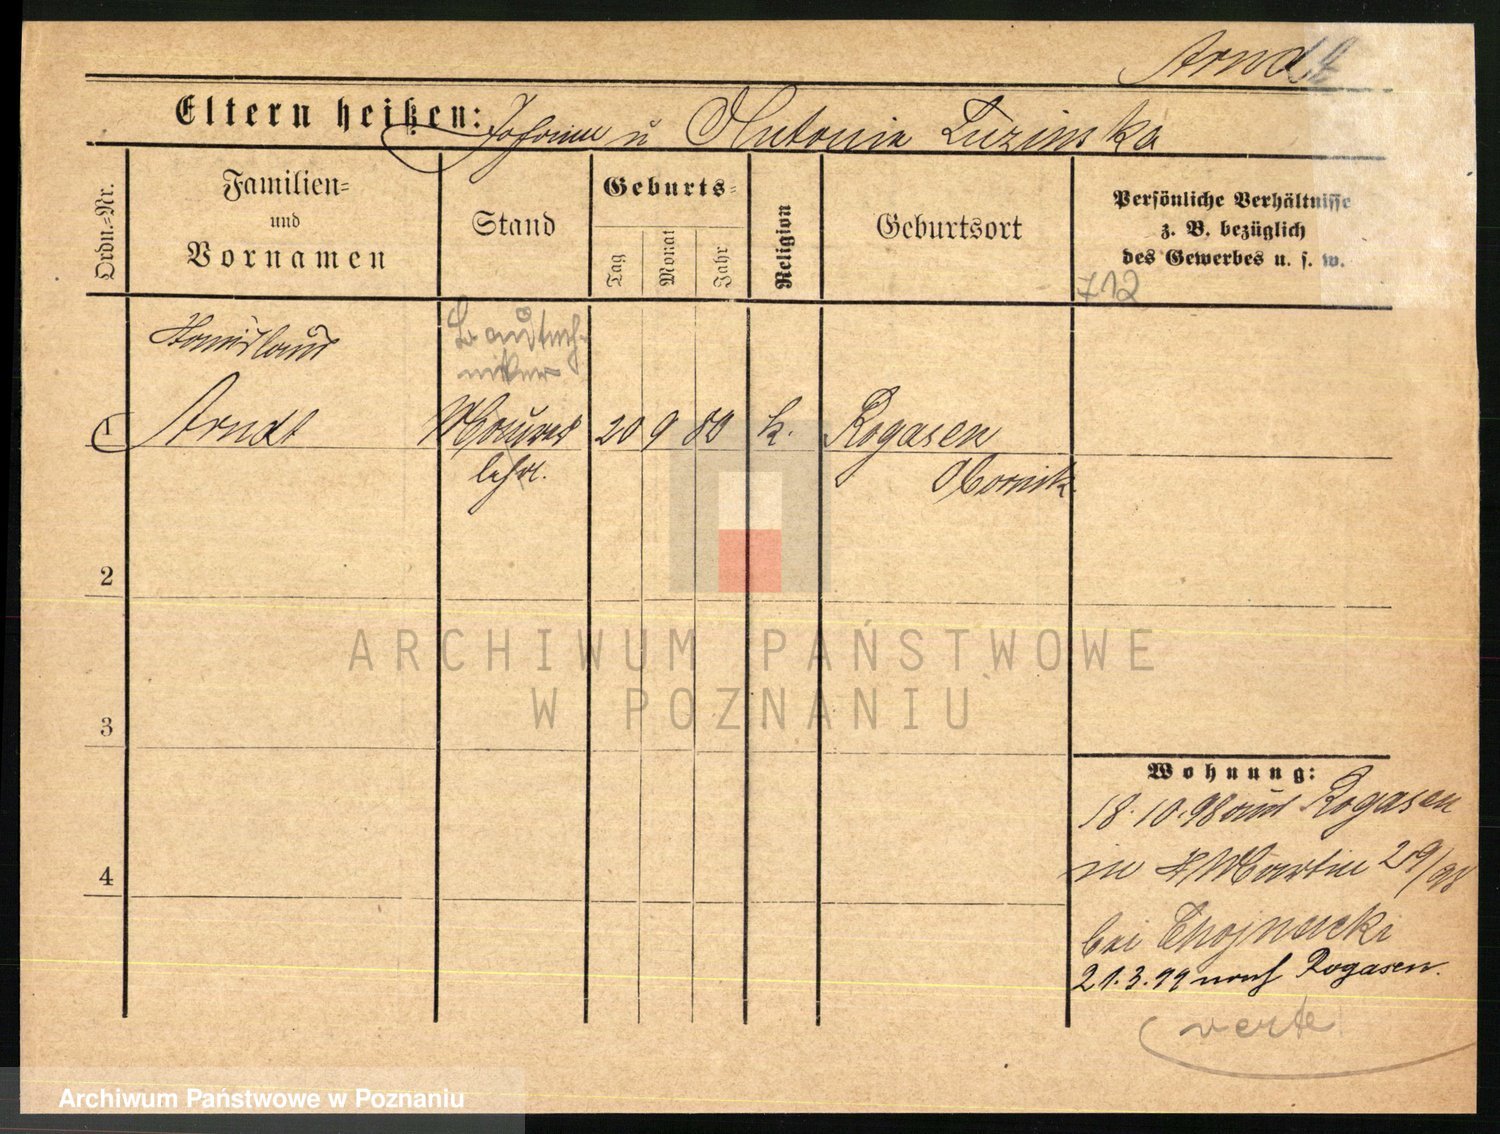 Arndt
Eltern heißen: Johann u Antonie Luzinska
Ordn.-Nr.
Familien-
und
Vornamen
Stand
Geburts-
Tag
Monat
Jahr
Religion
Geburtsort
Persönliche Verhältnisse
z. B. bezüglich
des Gewerbes u. s. w.
712
Stanislaus
Bautech-
niker
1 Arndt Maurer 20 9 80 k. Rogasen
lehrl. Obornik
2
3
4
Wohnung:
18.10.98 aus Rogasen
in St Martin 29/98
bei Chojnacki
21.3.99 nach Rogasen.
verte
ARCHIWUM PAŃSTWOWE
W POZNANIU
Archiwum Państwowe w Poznaniu